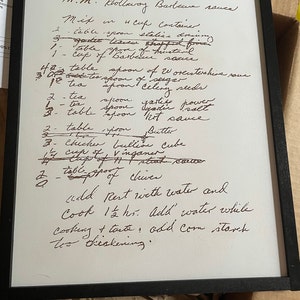 M.M. Holloway Barbecue sauce
Mix in 4 cup container
2 - table spoon
1 - table spoon of mustard
1 - cup of Barbecue sauce
table - spoon of Worcestershire sauce
spoon of sugar
1 - tea spoon celery seeds
2 - tea spoon garlic power
1 - tea spoon salt
3 - table spoon Hot sauce
2 - table spoon Butter
3 - chicken bullion cube
cup of vinegar
2 table spoon of chives
add Rest with water and
Cook 1 1/2 hr. add water while
cooking & taste, add corn starch
too thickening.